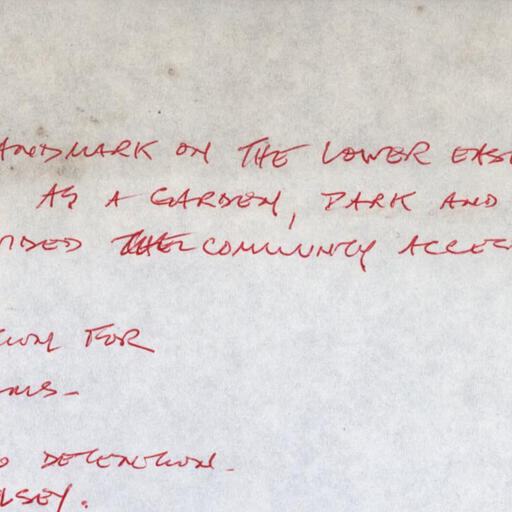 ANDMARK ON THE LOWER EAS
AS A GARDEN, PARK AND
VIDED THE COMMUNITY ACCES
TION FOR
MS-
O DETENTION.
LSEY.